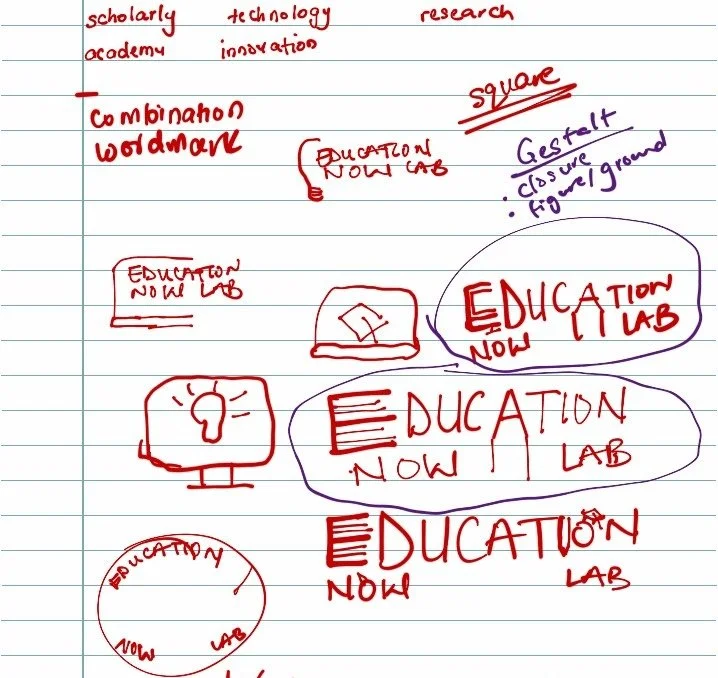 scholarly technology research
academy innovation
combination
wordmark
square
Gestalt
• closure
• figure/ground
EDUCATION
NOW LAB
EDUCATION
NOW LAB
EDUCATION
NOW LAB
EDUCATION
NOW LAB
EDUCATION
NOW LAB
EDUCATION
NOW LAB